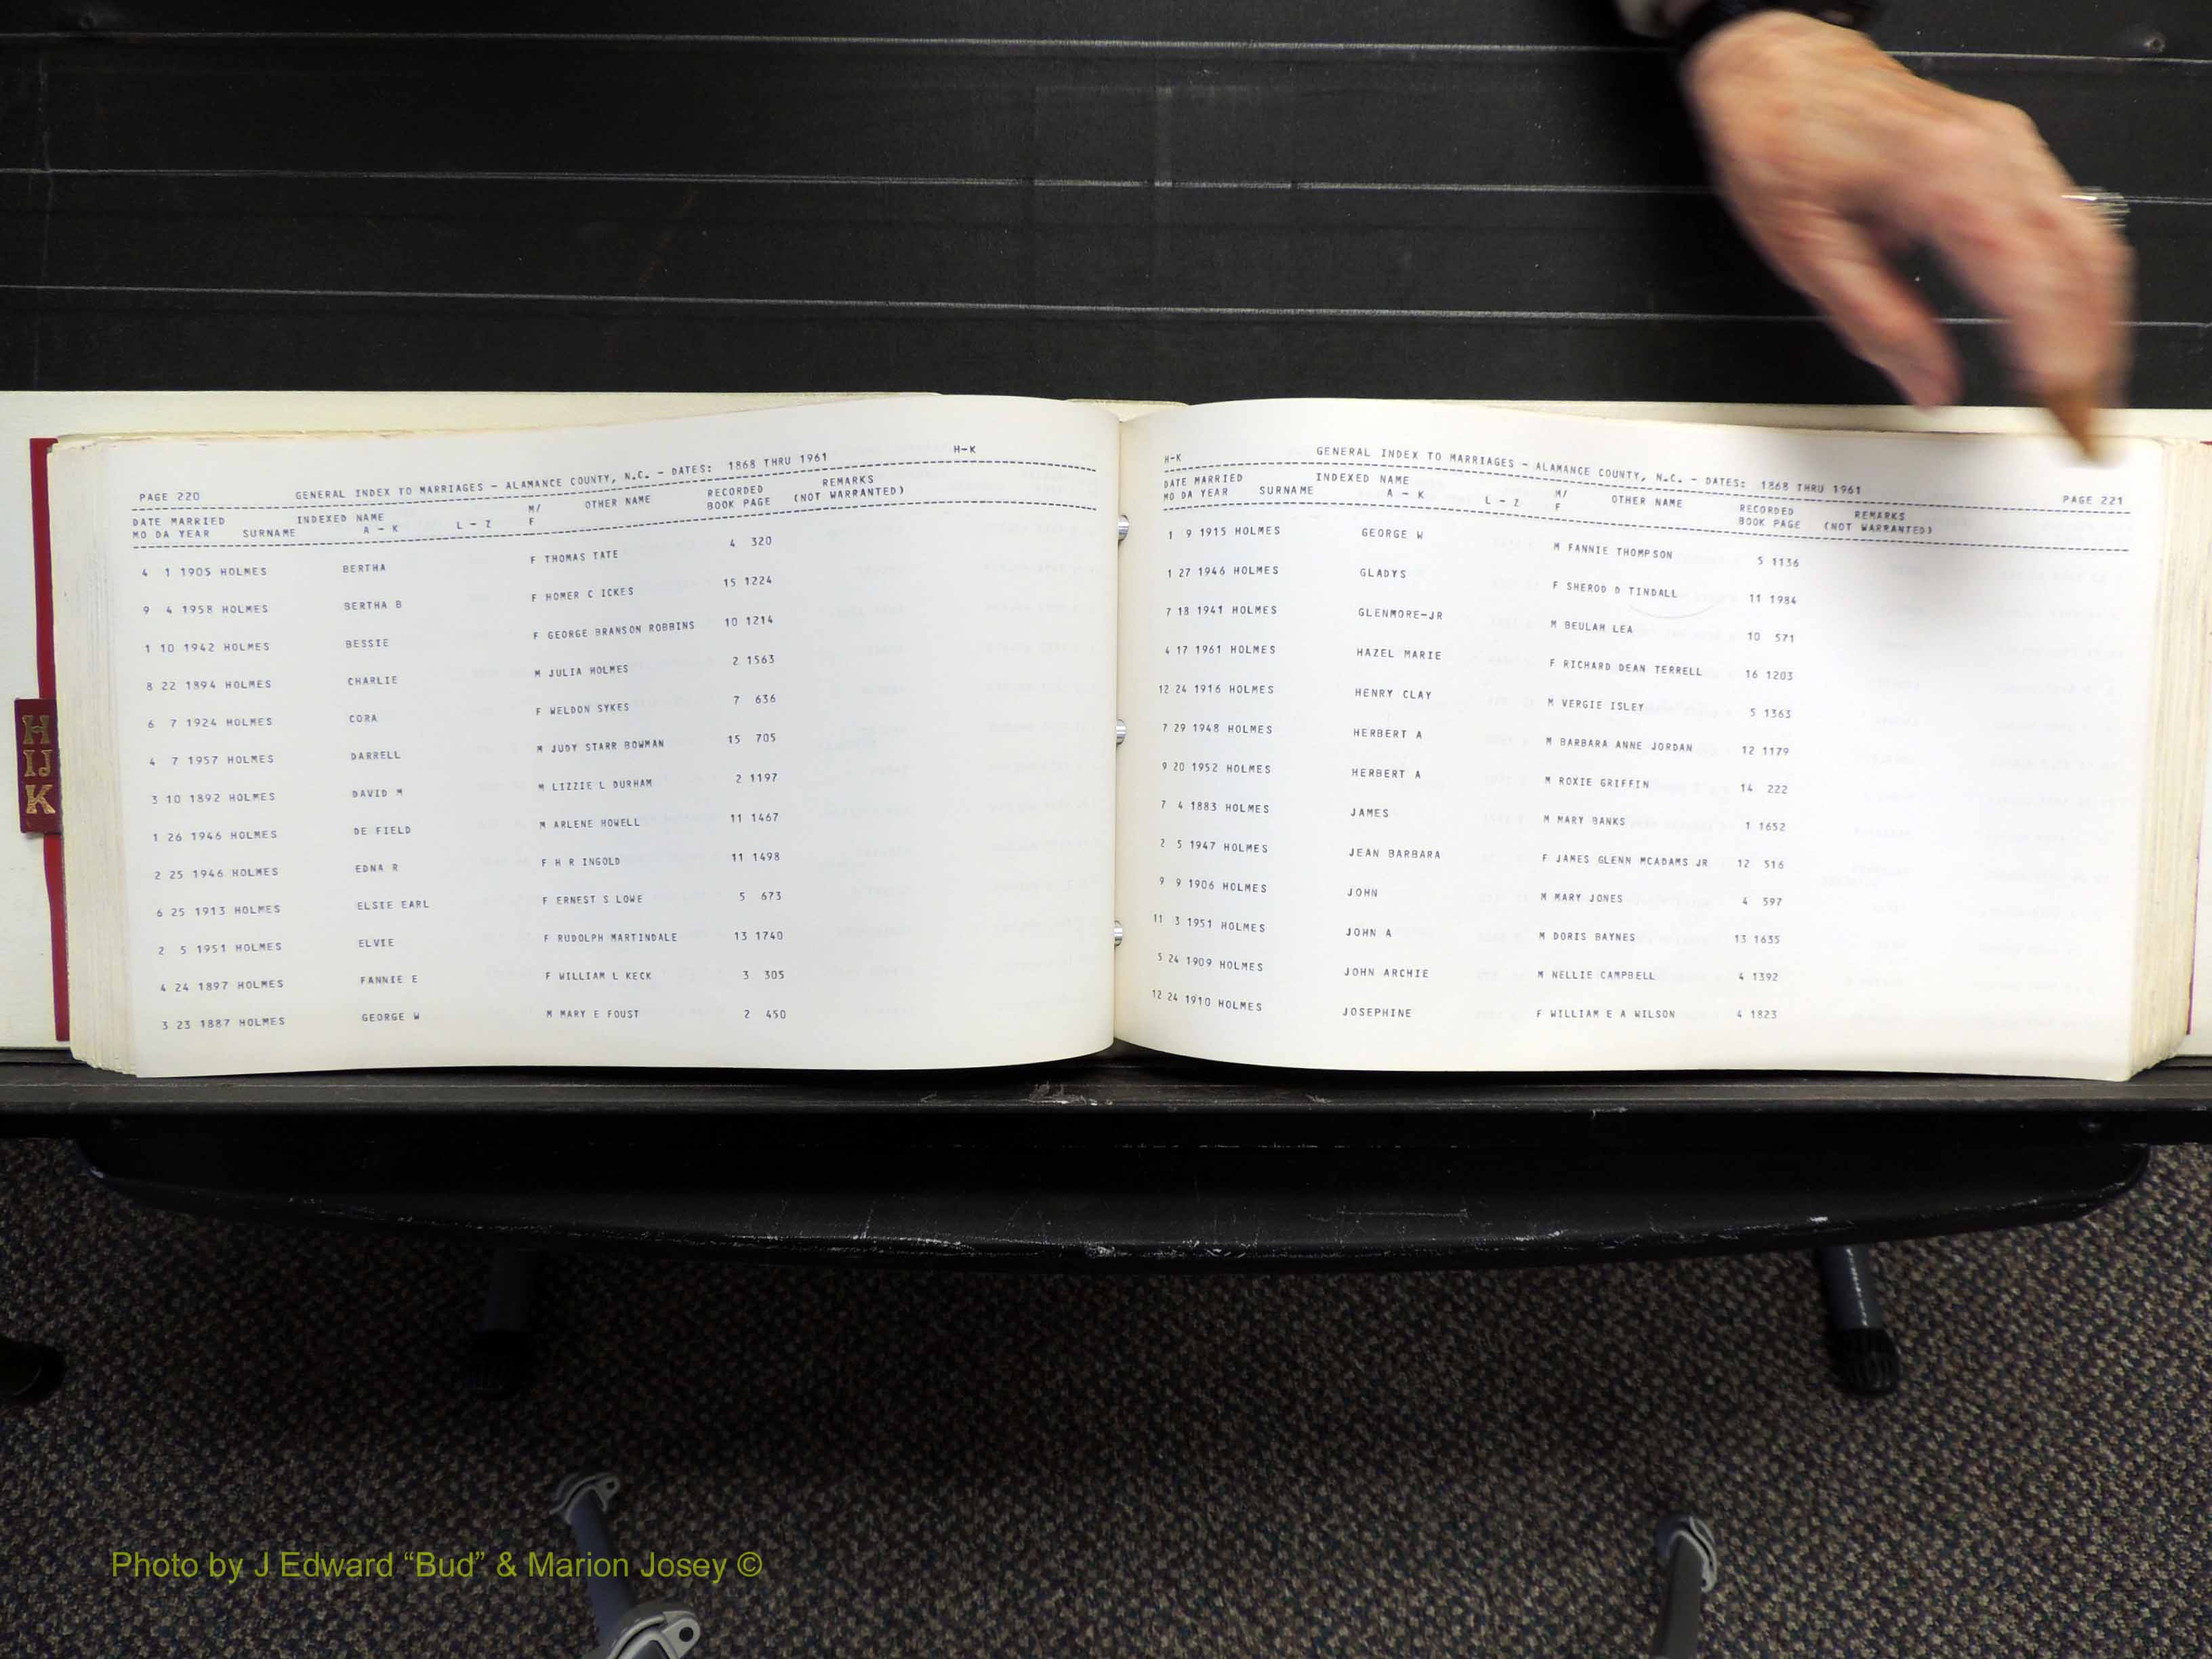 H-K
PAGE 220 GENERAL INDEX TO MARRIAGES - ALAMANCE COUNTY, N.C. - DATES: 1868 THRU 1961
DATE MARRIED INDEXED NAME M/ OTHER NAME RECORDED REMARKS
MO DA YEAR SURNAME A - K L - Z F BOOK PAGE (NOT WARRANTED)
4 1 1905 HOLMES BERTHA F THOMAS TATE 4 320
9 4 1958 HOLMES BERTHA B F HOMER C ICKES 15 1224
1 10 1942 HOLMES BESSIE F GEORGE BRANSON ROBBINS 10 1214
8 22 1894 HOLMES CHARLIE M JULIA HOLMES 2 1563
6 7 1924 HOLMES CORA F WELDON SYKES 7 636
4 7 1957 HOLMES DARRELL M JUDY STARR BOWMAN 15 705
3 10 1892 HOLMES DAVID M M LIZZIE L DURHAM 2 1197
1 26 1946 HOLMES DE FIELD M ARLENE HOWELL 11 1467
2 25 1946 HOLMES EDNA R F H R INGOLD 11 1498
6 25 1913 HOLMES ELSIE EARL F ERNEST S LOWE 5 673
2 5 1951 HOLMES ELVIE F RUDOLPH MARTINDALE 13 1740
4 24 1897 HOLMES FANNIE E F WILLIAM L KECK 3 305
3 23 1887 HOLMES GEORGE W M MARY E FOUST 2 450
H-K GENERAL INDEX TO MARRIAGES - ALAMANCE COUNTY, N.C. - DATES: 1868 THRU 1961 PAGE 221
DATE MARRIED INDEXED NAME M/ OTHER NAME RECORDED REMARKS
MO DA YEAR SURNAME A - K L - Z F BOOK PAGE (NOT WARRANTED)
1 9 1915 HOLMES GEORGE W M FANNIE THOMPSON 5 1136
1 27 1946 HOLMES GLADYS F SHEROD D TINDALL 11 1984
7 18 1941 HOLMES GLENMORE-JR M BEULAH LEA 10 571
4 17 1961 HOLMES HAZEL MARIE F RICHARD DEAN TERRELL 16 1203
12 24 1916 HOLMES HENRY CLAY M VERGIE ISLEY 5 1363
7 29 1948 HOLMES HERBERT A M BARBARA ANNE JORDAN 12 1179
9 20 1952 HOLMES HERBERT A M ROXIE GRIFFIN 14 222
7 4 1883 HOLMES JAMES M MARY BANKS 1 1652
2 5 1947 HOLMES JEAN BARBARA F JAMES GLENN MCADAMS JR 12 516
9 9 1906 HOLMES JOHN M MARY JONES 4 597
11 3 1951 HOLMES JOHN A M DORIS BAYNES 13 1635
5 24 1909 HOLMES JOHN ARCHIE M NELLIE CAMPBELL 4 1392
12 24 1910 HOLMES JOSEPHINE F WILLIAM E A WILSON 4 1823
H
IJ
K
Photo by J Edward “Bud” & Marion Josey ©